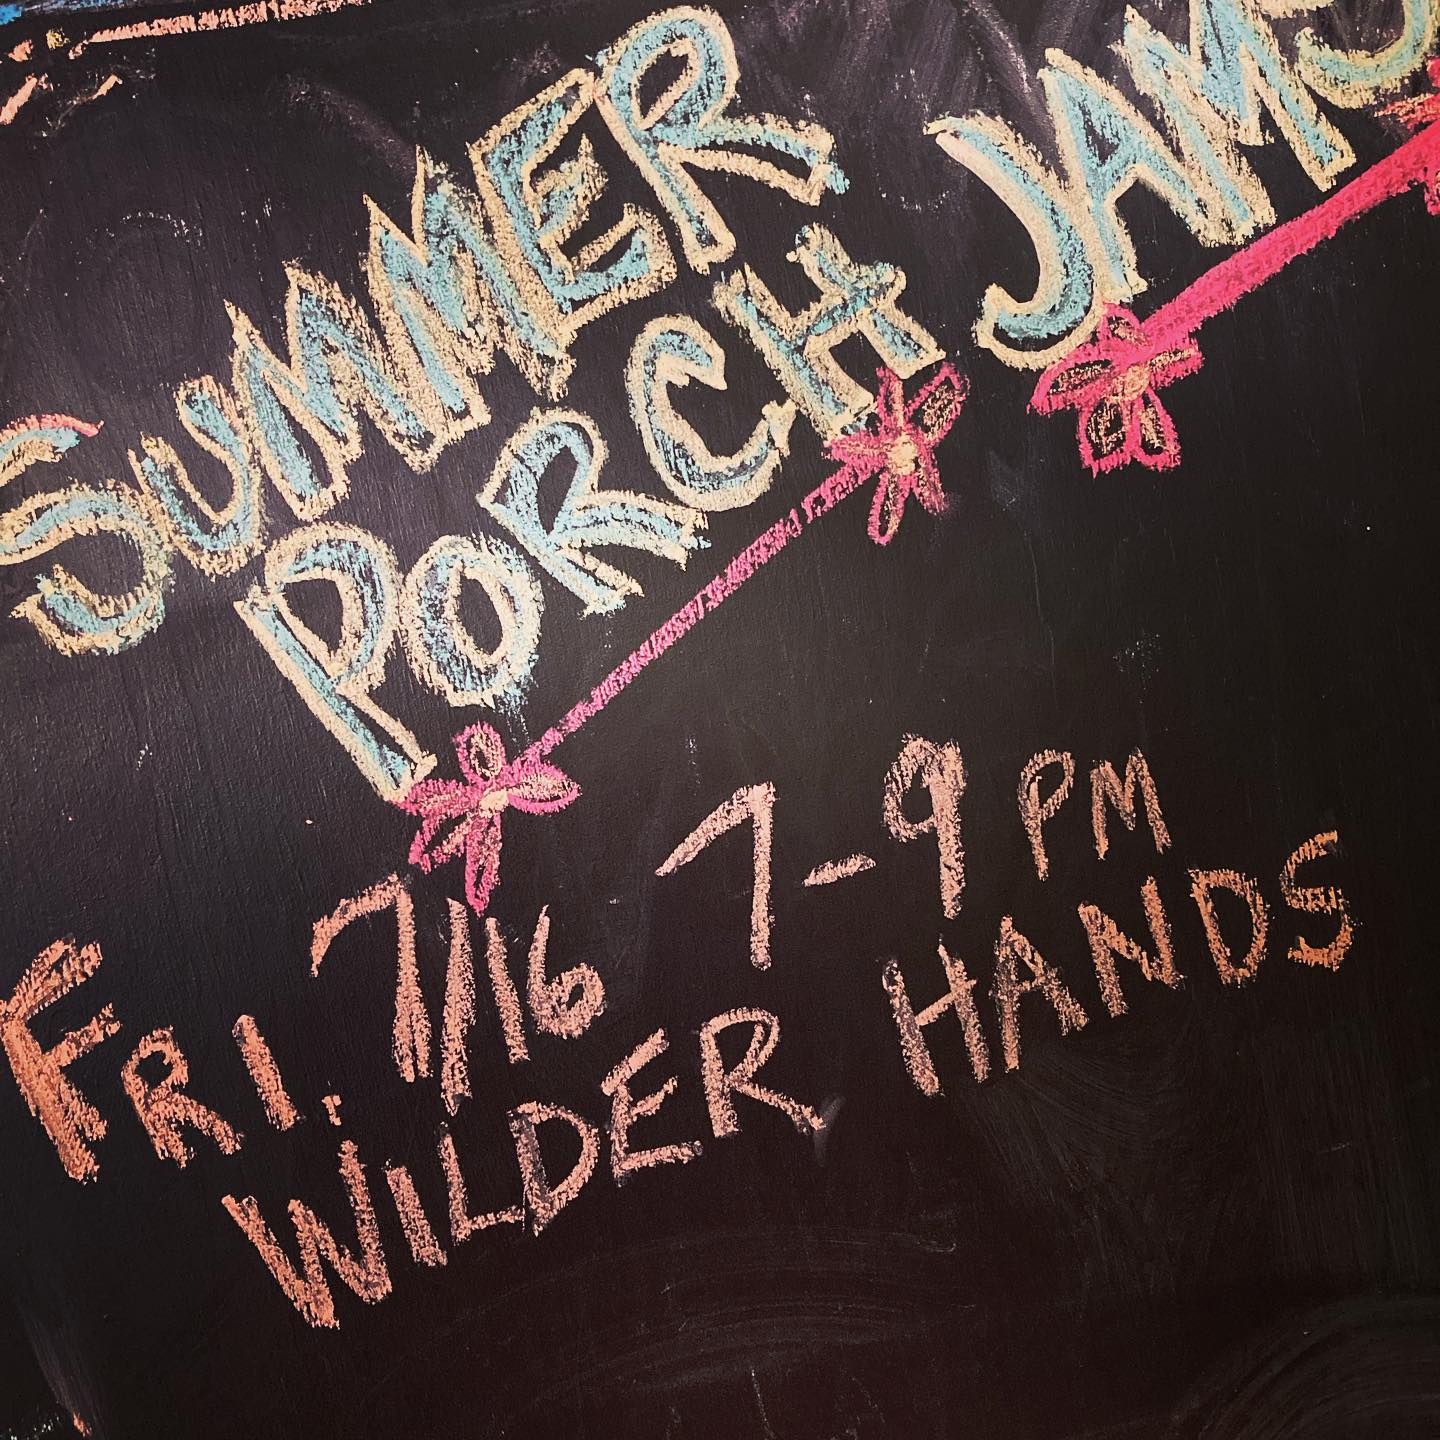 SUMMER
PORCH JAMS
FRI. 7/16 7-9 PM
WILDER HANDS